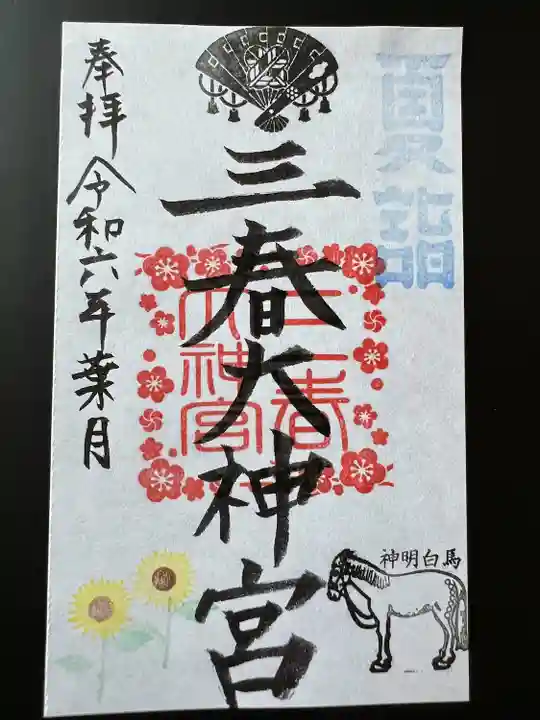 真詣
三春大神宮
三春
大神宮
奉拝 令和六年葉月
神明白馬